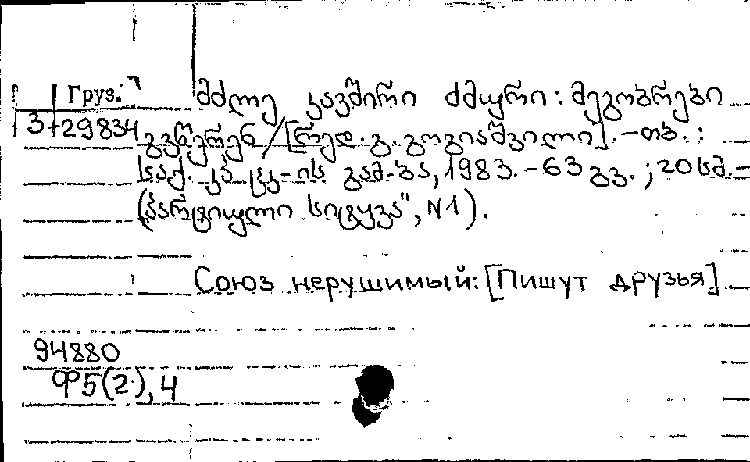 Груз.
3-29834
მძლე კავშირი ძმური: მეგობრები
გვწერენ / [რედ. გ. გოგიაშვილი]. - თბ. :
საქ. კპ ცკ-ის გამ-ბა, 1983. - 63 გვ. ; 20 სმ. -
(პარტიული სიტყვა", N1).
Союз нерушимый: [Пишут друзья]
94880
Ф5(2), 4